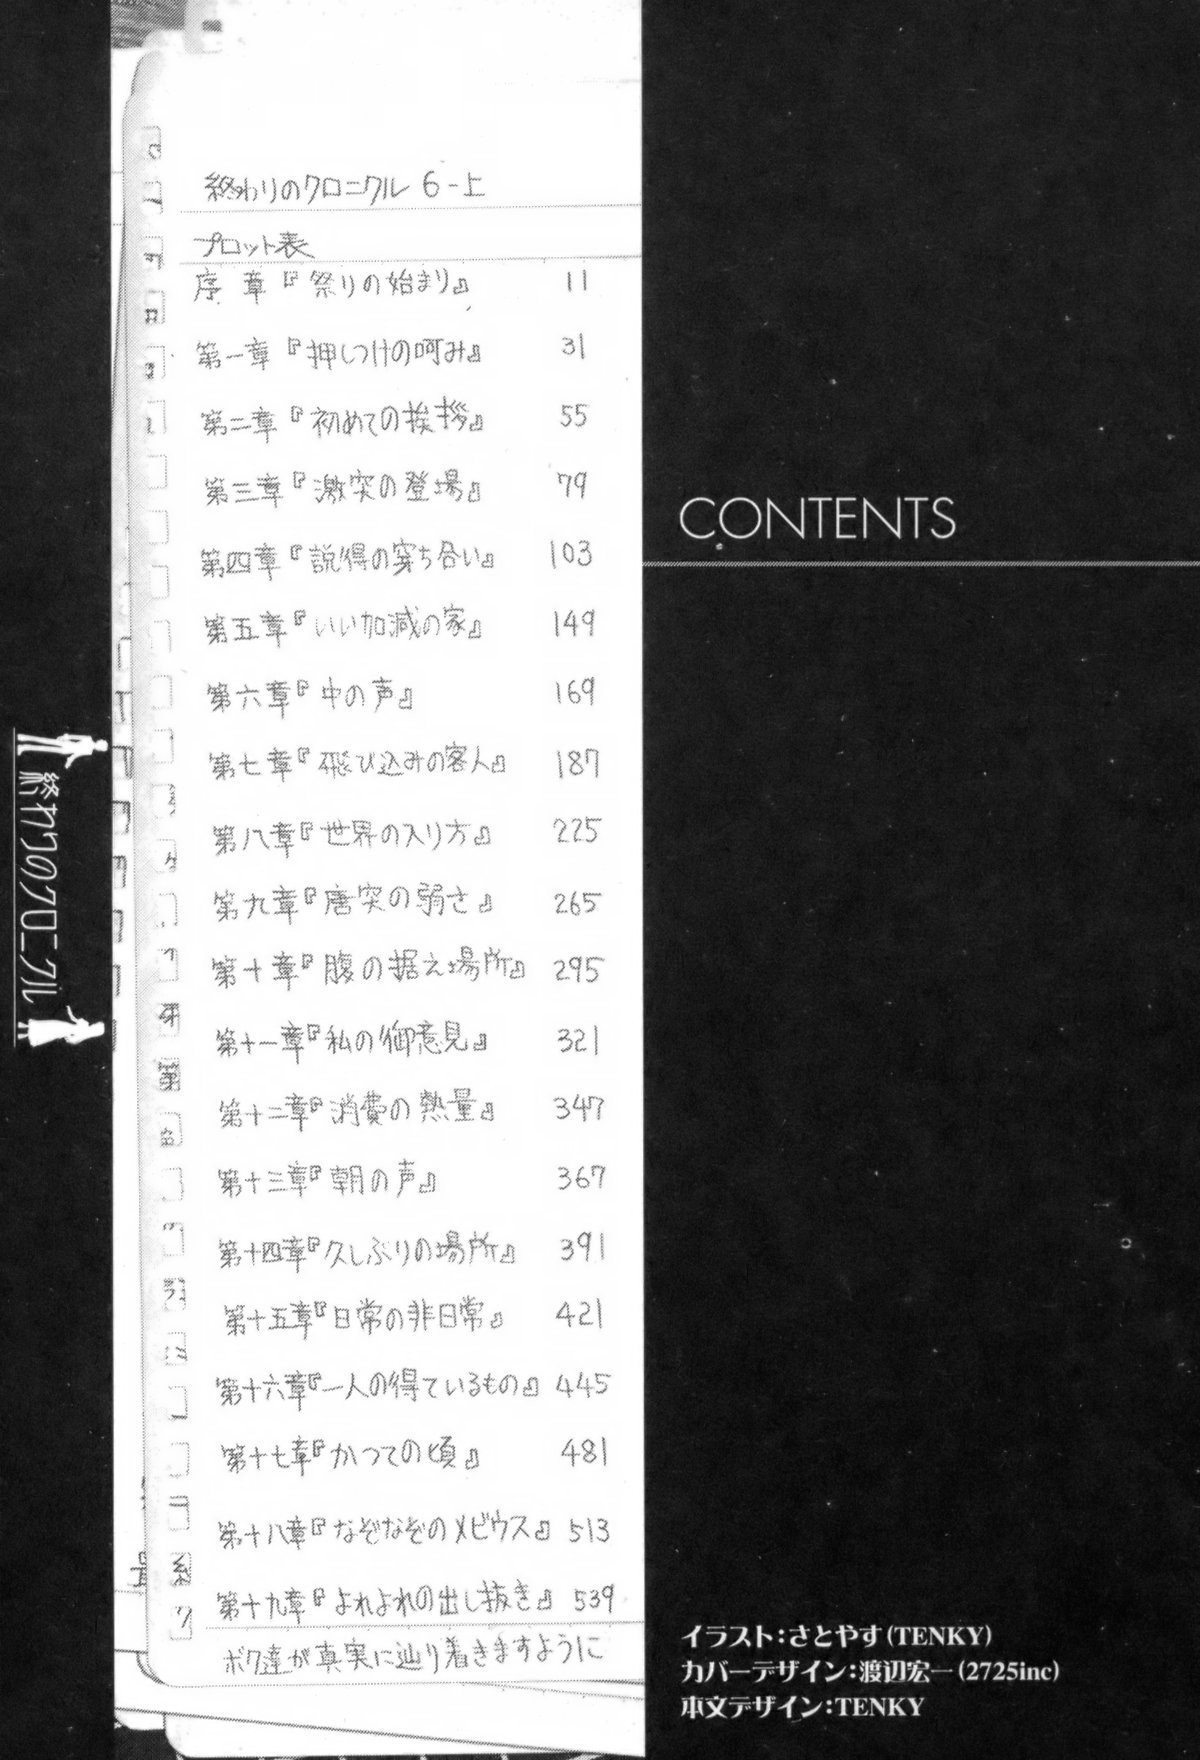 終わりのクロニクル 6-上
プロット表
序 章『祭りの始まり』 11
第一章『押しつけの呵み』 31
第二章『初めての挨拶』 55
第三章『激突の登場』 79
第四章『説得の穿ち合い』 103
第五章『いい加減の家』 149
第六章『中の声』 169
第七章『飛び込みの客人』 187
第八章『世界の入り方』 225
第九章『唐突の弱さ』 265
第十章『腹の据え場所』 295
第十一章『私の御意見』 321
第十二章『消費の熱量』 347
第十三章『朝の声』 367
第十四章『久しぶりの場所』 391
第十五章『日常の非日常』 421
第十六章『一人の得ているもの』 445
第十七章『かつての頃』 481
第十八章『なぞなぞのメビウス』 513
第十九章『よれよれの出し抜き』 539
ボク達が真実に辿り着きますように
CONTENTS
終わりのクロニクル
イラスト:さとやす(TENKY)
カバーデザイン:渡辺宏一(2725inc)
本文デザイン:TENKY